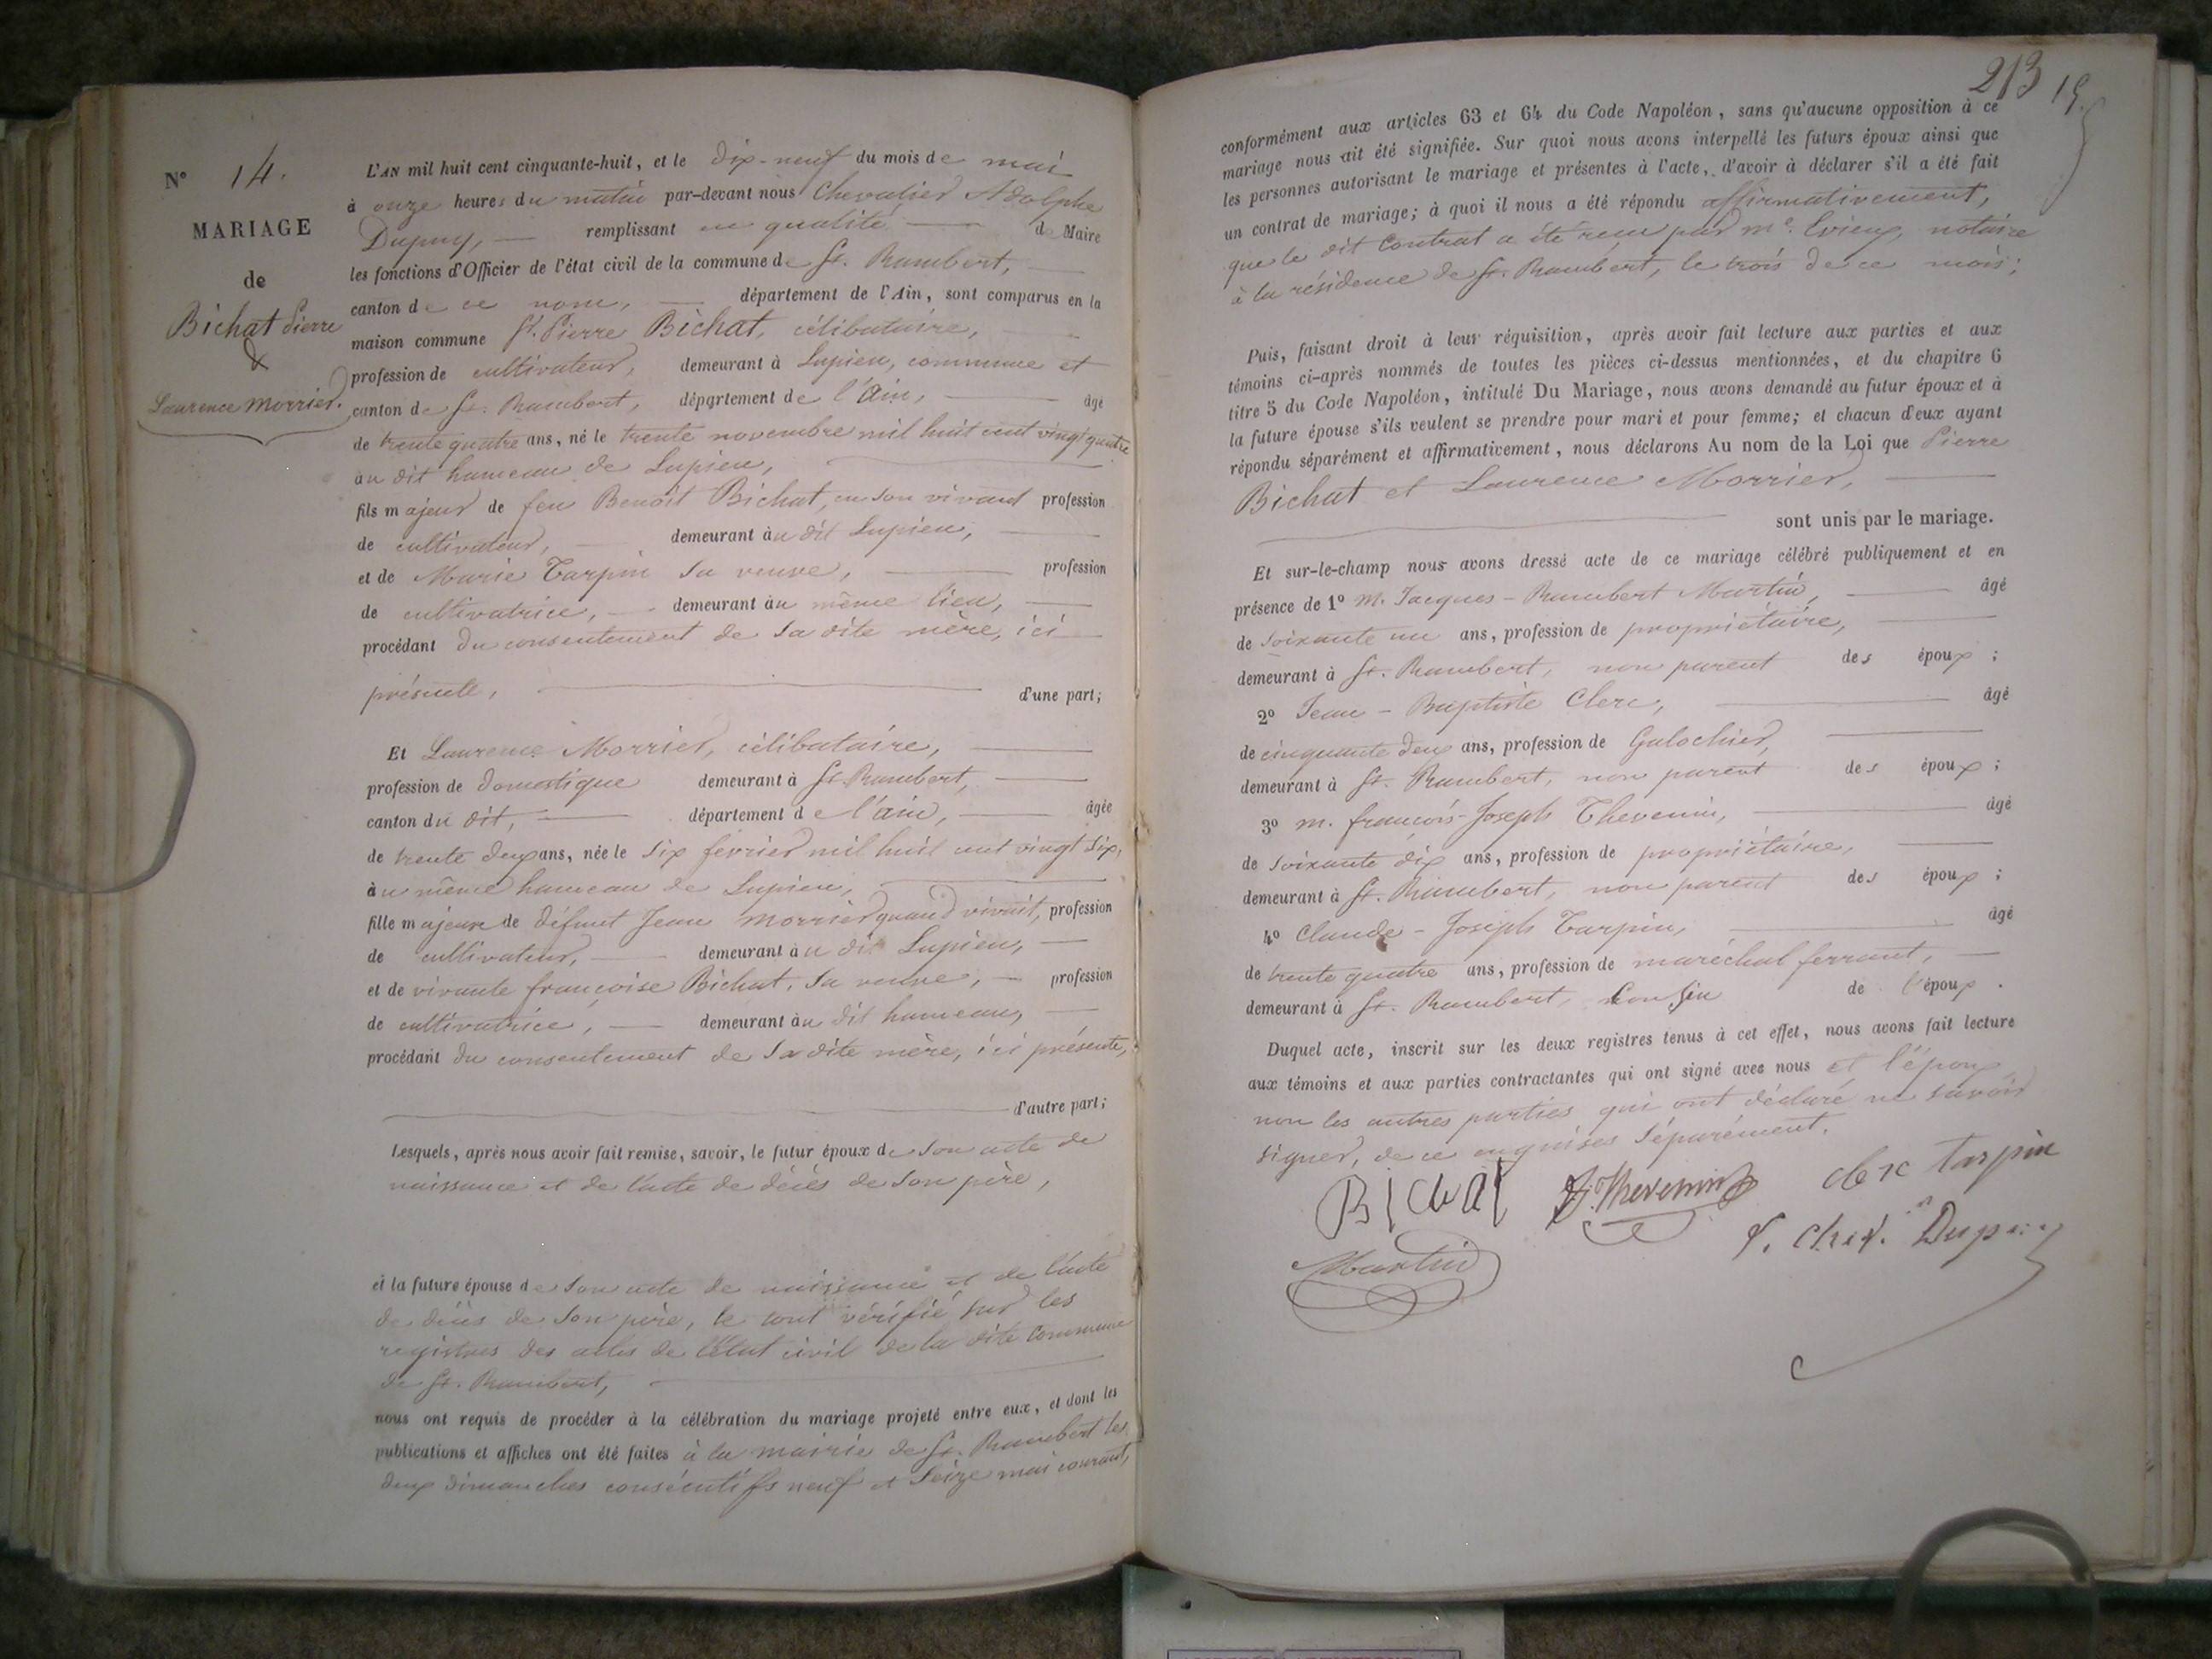 N° 14.
MARIAGE
de
Bichat Pierre
&
Laurence Morrier.
L'AN mil huit cent cinquante-huit, et le dix-neuf du mois de mai
à onze heures du matin par-devant nous Chevalier Adolphe
Dupuy, remplissant en qualité de Maire
les fonctions d'Officier de l'état civil de la commune de St. Rambert,
canton de ce nom, département de l'Ain, sont comparus en la
maison commune Pierre Bichat, célibataire,
profession de cultivateur, demeurant à Lupieu, commune et
canton de St. Rambert, département de l'Ain, âgé
de trente quatre ans, né le trente novembre mil huit cent vingt quatre
au dit hameau de Lupieu,
fils majeur de feu Benoit Bichat, en son vivant profession
de cultivateur, demeurant au dit Lupieu,
et de Marie Tarpin sa veuve, profession
de cultivatrice, demeurant au même lieu,
procédant du consentement de sa dite mère, ici
présente, d'une part;
Et Laurence Morrier, célibataire,
profession de domestique demeurant à St Rambert,
canton du dit, département de l'ain, âgée
de trente deux ans, née le six février mil huit cent vingt six,
au même hameau de Lupieu,
fille majeure de défunt Jean Morrier quand vivait, profession
de cultivateur, demeurant au dit Lupieu,
et de vivante françoise Bichat, sa veuve, profession
de cultivatrice, demeurant au dit hameau,
procédant du consentement de sa dite mère, ici présente,
d'autre part;
Lesquels, après nous avoir fait remise, savoir, le futur époux de son acte de
naissance et de l'acte de décès de son père,
et la future épouse de son acte de naissance et de l'acte
de décès de son père, le tout vérifié sur les
registres des actes de l'état civil de la dite commune
de St. Rambert,
nous ont requis de procéder à la célébration du mariage projeté entre eux, et dont les
publications et affiches ont été faites à la mairie de St. Rambert les
deux dimanches consécutifs neuf et seize mai courant,
213 15.
conformément aux articles 63 et 64 du Code Napoléon, sans qu'aucune opposition à ce
mariage nous ait été signifiée. Sur quoi nous avons interpellé les futurs époux ainsi que
les personnes autorisant le mariage et présentes à l'acte, d'avoir à déclarer s'il a été fait
un contrat de mariage; à quoi il nous a été répondu affirmativement,
que le dit contrat a été reçu par Me. notaire
à la résidence de St. Rambert, le trois de ce mois;
Puis, faisant droit à leur réquisition, après avoir fait lecture aux parties et aux
témoins ci-après nommés de toutes les pièces ci-dessus mentionnées, et du chapitre 6
titre 5 du Code Napoléon, intitulé Du Mariage, nous avons demandé au futur époux et à
la future épouse s'ils veulent se prendre pour mari et pour femme; et chacun d'eux ayant
répondu séparément et affirmativement, nous déclarons Au nom de la Loi que Pierre
Bichat et Laurence Morrier,
sont unis par le mariage.
Et sur-le-champ nous avons dressé acte de ce mariage célébré publiquement et en
présence de 1° M. Jacques-Rambert Martin, âgé
de soixante un ans, profession de propriétaire,
demeurant à St. Rambert, non parent des époux;
2° Jean-Baptiste Clerc, âgé
de cinquante deux ans, profession de Galochier,
demeurant à St. Rambert, non parent des époux;
3° M. françois-Joseph Thevenin, âgé
de soixante dix ans, profession de propriétaire,
demeurant à St. Rambert, non parent des époux;
4° Claude-Joseph Tarpin, âgé
de trente quatre ans, profession de maréchal ferrant,
demeurant à St. Rambert, Cousin de l'époux.
Duquel acte, inscrit sur les deux registres tenus à cet effet, nous avons fait lecture
aux témoins et aux parties contractantes qui ont signé avec nous et l'époux
non les autres parties qui ont déclaré ne savoir
signer, de ce enquises séparément.
Bichat Thevenin clerc tarpin
Martin Dupuy